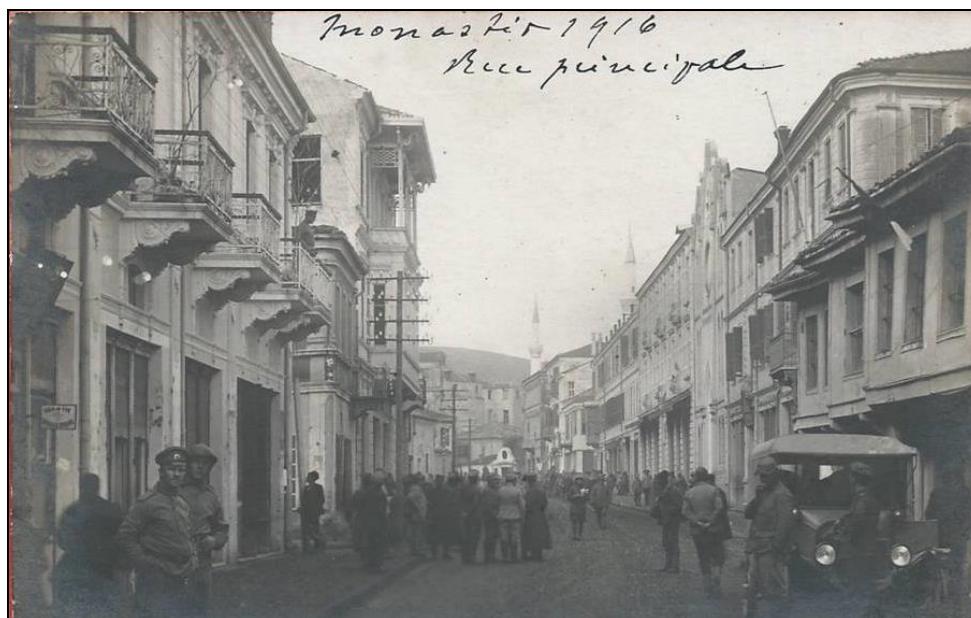 Monastir 1916
Rue principale